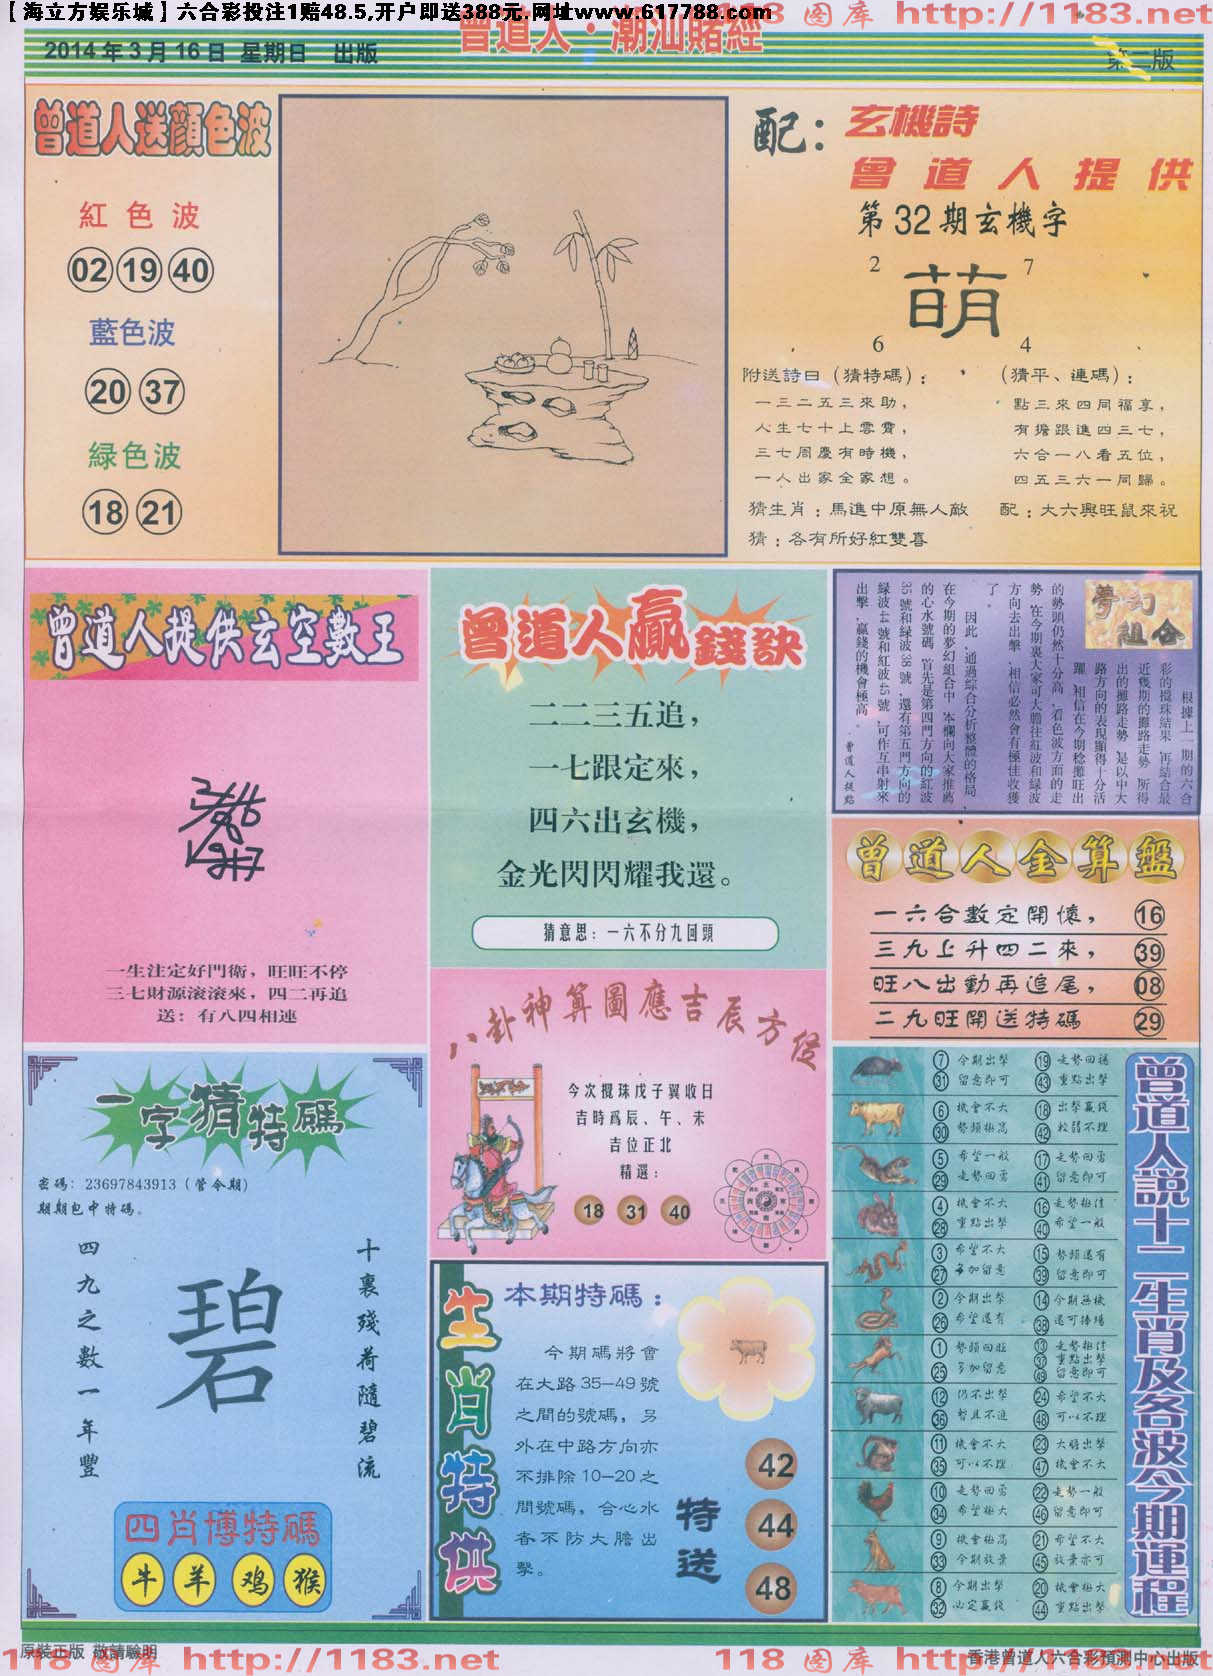 【海立方娱乐城】六合彩投注1赔48.5,开户即送388元.网址www.617788.com
118 图库 http://1183.net
2014年3月16日 星期日 出版
曾道人·潮汕賭經
第二版
曾道人送顔色波
紅色波
02 19 40
藍色波
20 37
緑色波
18 21
配：玄機詩
曾道人提供
第32期玄機字
2 7
萌
6 4
附送詩曰（猜特碼）：
一三二五三來助，
人生七十上雲霄，
三七周慶有時機，
一人出家全家想。
（猜平、連碼）：
點三來四同福享，
有擔跟進四三七，
六合一八看五位，
四五三六一同歸。
猜生肖：馬進中原無人敵
配：大六興旺鼠來祝
猜：各有所好紅雙喜
曾道人提供玄空數王
一生注定好門衛，旺旺不停
三七財源滚滚來，四二再追
送：有八四相連
曾道人贏錢訣
二二三五追，
一七跟定來，
四六出玄機，
金光閃閃耀我還。
猜意思：一六不分九回頭
夢幻組合
根據上一期的六合
彩的攪珠結果，再結合最
近幾期的攤路走勢，所得
出的攤路走勢，是以中大
路方向的表現顯得十分活
躍，相信在今期稔攤旺出
的勢頭仍然十分高，看色波方面的走
勢，在今期裏大家可大膽往紅波和緑波
方向去出擊，相信必然會有極佳收獲
了。
因此，通過綜合分析整體的格局，
在今期的夢幻組合中，本欄向大家推薦
的心水號碼，首先是第四門方向的紅波
35號和緑波38號，還有第五門方向的
緑波44號和紅波45號，可作互串射來
出擊，贏錢的機會極高。
曾道人提點
曾道人金算盤
一六合數定開懷， 16
三九上升四二來， 39
旺八出動再追尾， 08
二九旺開送特碼 29
八卦神算圖應吉辰方位
今次攪珠戊子翼收日
吉時爲辰、午、未
吉位正北
精選：
18 31 40
一字猜特碼
密碼：23697843913（管今期）
期期包中特碼。
四九之數一年豐
碧
十裏殘荷隨碧流
四肖博特碼
牛 羊 鸡 猴
生肖特供
本期特碼：
今期碼將會
在大路35—49號
之間的號碼，另
外在中路方向亦
不排除10—20之
間號碼，合心水
者不防大膽出
擊。
特送
42
44
48
曾道人說十二生肖及各波今期運程
7 今期出擊 19 走勢回穩
31 留意即可 43 重點出擊
6 機會不大 18 出擊贏錢
30 勢頭極高 42 較弱不理
5 希望一般 17 走勢回勇
29 走勢回勇 41 留意即可
4 機會不大 16 走勢極佳
28 重點出擊 40 希望一般
3 希望不大 15 勢頭還有
27 多加留意 39 留意即可
2 今期出擊 14 今期無機
26 希望還有 38 還可捧場
1 勢頭回旺 13 走勢極佳
25 多加留意 37 重點出擊
49 留意即可
12 仍不出擊 24 希望不大
36 暫且不追 48 可以不理
11 機會不大 23 大膽出擊
35 可以不理 47 機會不大
10 走勢回勇 22 走勢一般
34 希望極大 46 留意即可
9 機會極高 21 希望不大
33 今期放棄 45 放棄亦可
8 今期出擊 20 機會極大
32 必定贏錢 44 重點出擊
原裝正版 敬請驗明
香港曾道人六合彩預測中心出版
118 图库 http://1183.net
118 图库 http://1183.net